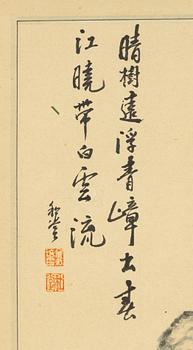 晴樹遠浮青嶂出春
江曉帶白雲流